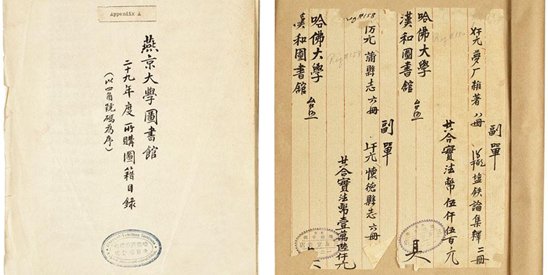 Appendix A
燕京大學圖書館
二十九年度所購圖籍目錄
(以四角號碼為序)
夢厂雜著 八冊 鹽鉄論集釋 二冊
副單
共合實法幣伍仟伍百元
哈佛大學
漢和圖書館 台照
具
蒲縣志 六冊
副單
懷德縣志 六冊
共合實法幣壹萬陸仟元
哈佛大學
漢和圖書館 台照